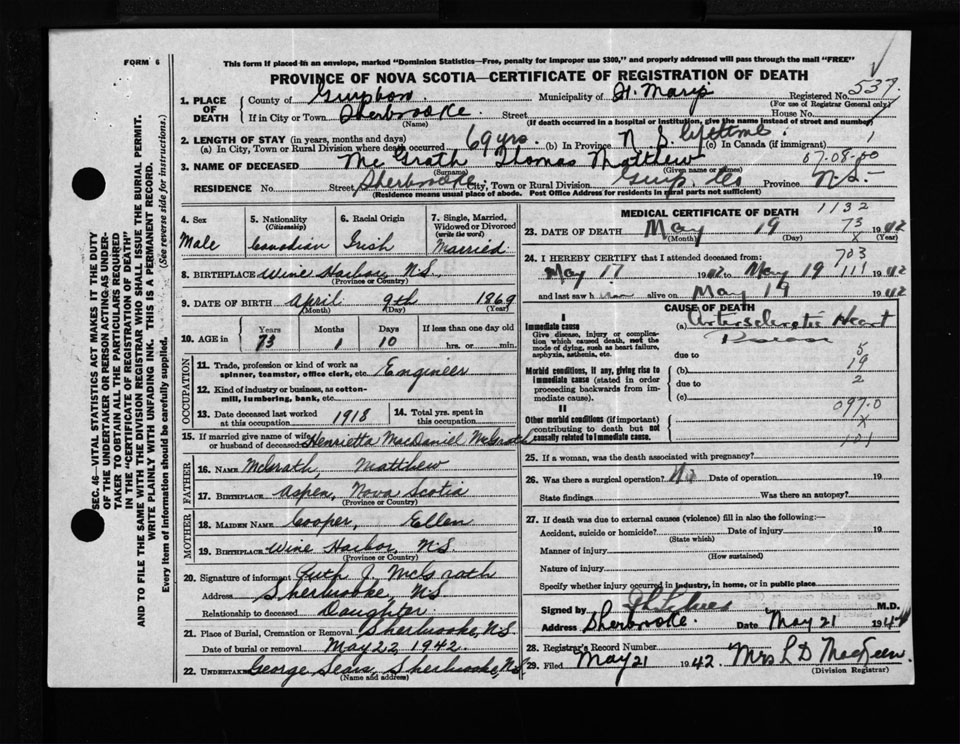 FORM 6
This form if placed in an envelope, marked "Dominion Statistics—Free, penalty for improper use $300," and properly addressed will pass through the mail "FREE"
PROVINCE OF NOVA SCOTIA—CERTIFICATE OF REGISTRATION OF DEATH
1. PLACE OF DEATH
County of Guysboro Municipality of St. Marys Registered No. 537
(For use of Registrar General only)
If in City or Town Sherbrooke Street House No.
(Name) (If death occurred in a hospital or institution, give the name instead of street and number)
2. LENGTH OF STAY (in years, months and days)
(a) In City, Town or Rural Division where death occurred 69 yrs. (b) In Province N. S. Lifetime (c) In Canada (if immigrant)
3. NAME OF DECEASED McGrath Thomas Matthew
(Surname) (Given name or names)
07-08-00
RESIDENCE No. Street Sherbrooke City, Town or Rural Division Guys. Co Province N.S.
(Residence means usual place of abode. Post Office Address for residents in rural parts not sufficient)
SEC. 46—VITAL STATISTICS ACT MAKES IT THE DUTY
OF THE UNDERTAKER OR PERSON ACTING AS UNDER-
TAKER TO OBTAIN ALL THE PARTICULARS REQUIRED
IN THE "CERTIFICATE OF REGISTRATION OF DEATH"
AND TO FILE THE SAME WITH THE DIVISION REGISTRAR WHO SHALL ISSUE THE BURIAL PERMIT.
WRITE PLAINLY WITH UNFADING INK. THIS IS A PERMANENT RECORD.
Every item of information should be carefully supplied. (See reverse side for instructions.)
4. Sex
Male
5. Nationality
(Citizenship)
Canadian
6. Racial Origin
Irish
7. Single, Married, Widowed or Divorced
(write the word)
Married
8. BIRTHPLACE Wine Harbour, N.S.
(Province or Country)
9. DATE OF BIRTH April 9th 1869
(Month) (Day) (Year)
10. AGE in Years 73 Months 1 Days 10 If less than one day old hrs. or min.
OCCUPATION
11. Trade, profession or kind of work as
spinner, teamster, office clerk, etc. Engineer
12. Kind of industry or business, as cotton-
mill, lumbering, bank, etc.
13. Date deceased last worked
at this occupation 1918
14. Total yrs. spent in
this occupation
15. If married give name of wife
or husband of deceased Henrietta MacDaniel McGrath
FATHER
16. NAME McGrath, Matthew
17. BIRTHPLACE Aspen, Nova Scotia
(Province or Country)
MOTHER
18. MAIDEN NAME Cooper, Ellen
19. BIRTHPLACE Wine Harbor, N.S.
(Province or Country)
20. Signature of informant Ruth J. McGrath
Address Sherbrooke, NS
Relationship to deceased Daughter
21. Place of Burial, Cremation or Removal Sherbrooke, N.S.
Date of burial or removal May 22, 1942.
22. UNDERTAKER George Sears, Sherbrooke, N.S.
(Name and address)
MEDICAL CERTIFICATE OF DEATH
1132
23. DATE OF DEATH May 19 1942
(Month) (Day) (Year)
73
x
24. I HEREBY CERTIFY that I attended deceased from:
703
May 17 1942 to May 19 1942
111
and last saw him alive on May 19 1942
CAUSE OF DEATH
I
Immediate cause
Give disease, injury or complica-
tion which caused death, not the
mode of dying, such as heart failure,
asphyxia, asthenia, etc.
(a) Arteriosclerotic Heart
Disease
due to
Morbid conditions, if any, giving rise to
immediate cause (stated in order
proceeding backwards from im-
mediate cause).
(b)
due to
(c)
5
19
2
II
Other morbid conditions (if important)
contributing to death but not
causally related to immediate cause.
097.0
x
101
25. If a woman, was the death associated with pregnancy?
26. Was there a surgical operation? No Date of operation 19
State findings Was there an autopsy?
27. If death was due to external causes (violence) fill in also the following:—
Accident, suicide or homicide? Date of injury 19
(State which)
Manner of injury
(How sustained)
Nature of injury
Specify whether injury occurred in industry, in home, or in public place
Signed by M.D.
Address Sherbrooke. Date May 21 1942
28. Registrar's Record Number
29. Filed May 21 1942. Mrs L D MacKeen.
(Division Registrar)